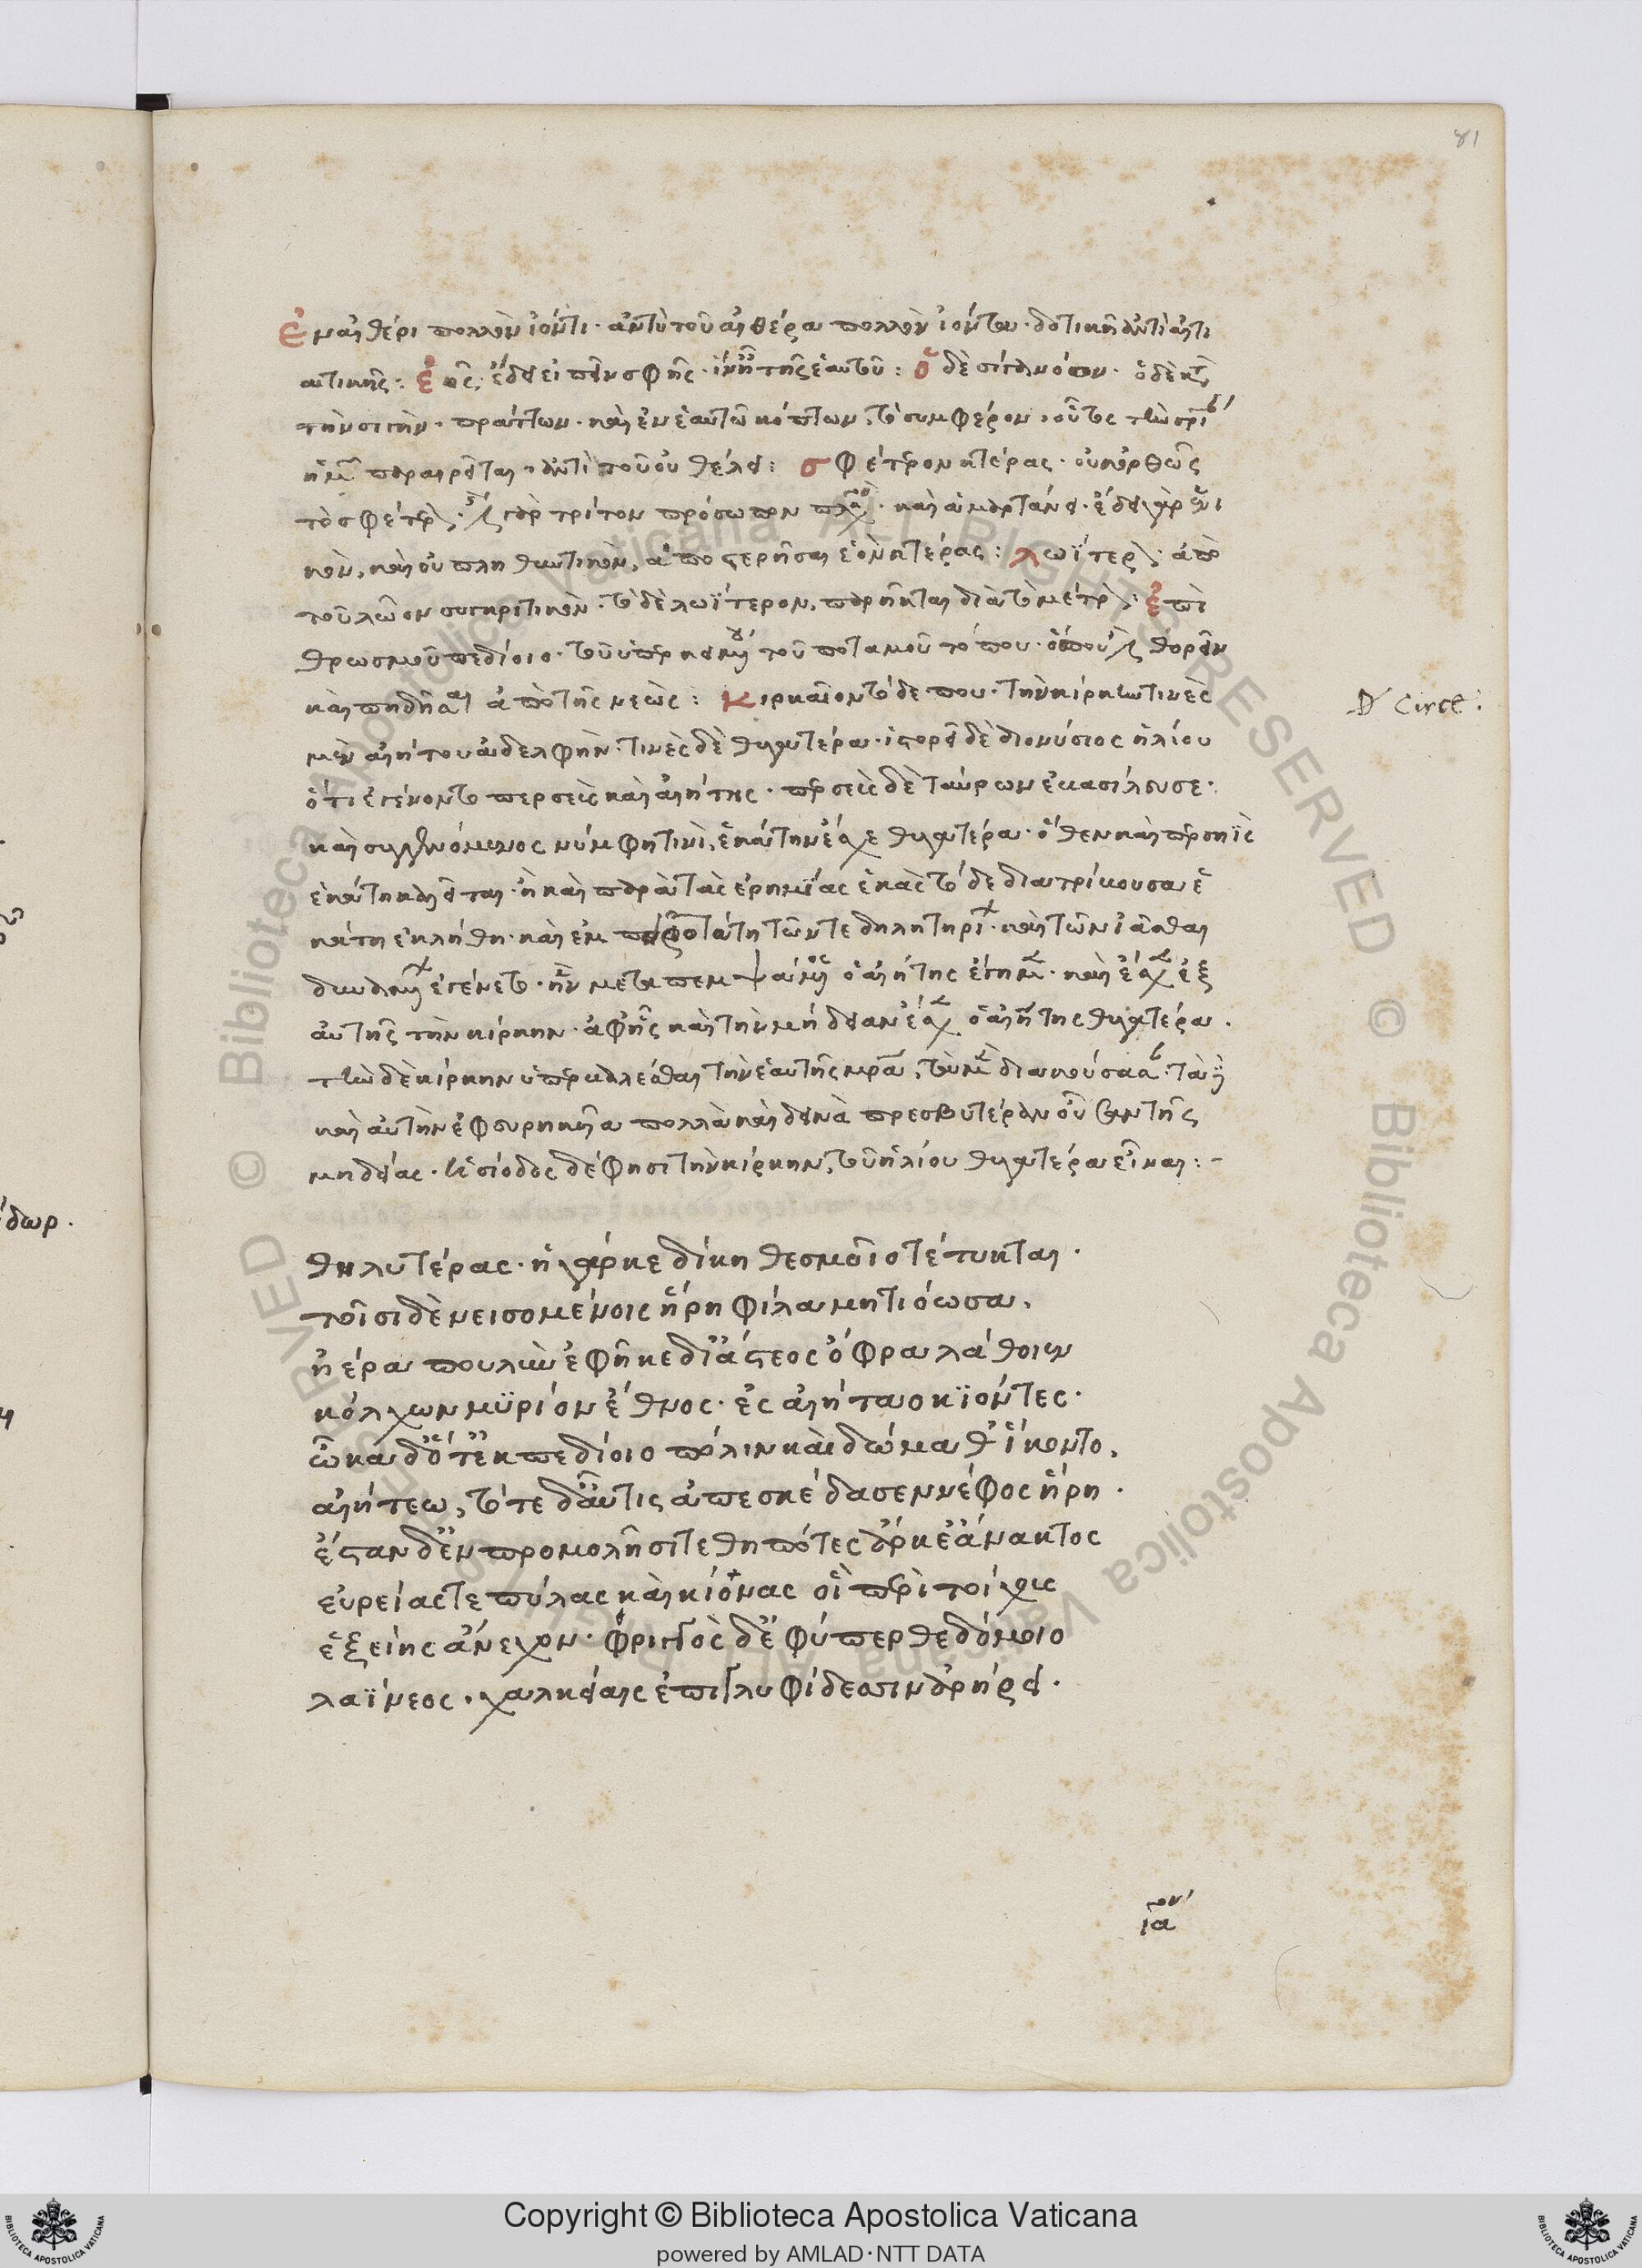 81
ἐν αἰθέρι πολλὸν ἰόντι· ἀντὶ τοῦ αἰθέρα πολλὸν ἰόντα· δοτικὴ ἀντὶ αἰτι
ατικῆς: ἑῆς, ἔδει εἰπεῖν σφῆς· ἵν ᾖ τῆς ἑαυτοῦ: ὁ δὲ σῖγα νόον· ὁ δὲ κατὰ
τὴν σιγὴν πράττων· καὶ ἐν ἑαυτῷ κόπτων, τὸ συμφέρον, οὕτως
παραιρεῖται, ἀντὶ τοῦ οὐ θέλει: σφέτερον κτέρας· οὐκ ὀρθῶς
τὸ σφέτερον· γὰρ τρίτον πρόσωπον καὶ ἁμαρτάνει· ἔδει γὰρ ἑνι
κὸν, καὶ οὐ πληθυντικὸν, ἀποστερῆσαι ἑὸν κτέρας: λωΐτερον· ἀπὸ
τοῦ λῶον συγκριτικὸν· τὸ δὲ λωΐτερον, παρῆκται διὰ τὸ μέτρον: ἐπὶ
θρωσμοῦ πεδίοιο· τοῦ ὑπερκειμένου τοῦ ποταμοῦ τόπου· ὅπου θορεῖν
καὶ πηδῆσαι ἀπὸ τῆς νεώς: κιρκαῖον τόδε που· τὴν κίρκην τινὲς
μὲν αἰήτου ἀδελφὴν· τινὲς δὲ θυγατέρα· ἱστορεῖ δὲ διονύσιος ἡλίου
ὅτι ἐγένοντο περσεὺς καὶ αἰήτης· περσεὺς δὲ ταύρων ἐβασίλευσε·
καὶ συγγενόμενος νύμφῃ τινὶ, ἑκάτην ἔσχε θυγατέρα· ὅθεν καὶ περσηῒς
ἑκάτη καλεῖται· ἢ καὶ παρὰ τὰς ἐρημίας ἑκὰς τόδε διατρίβουσα ἑ
κάτη ἐκλήθη· καὶ ἐμπειροτάτη τῶν τε δηλητηρίων· καὶ τῶν ἰᾶσθαι
δυναμένων ἐγένετο· ἣν μεταπεμψάμενος ὁ αἰήτης ἔγημεν· καὶ ἔσχεν ἐξ
αὐτῆς τὴν κίρκην· ἀφ ἧς καὶ τὴν μήδειαν ἔσχεν ὁ αἰήτης θυγατέρα·
τὴν δὲ κίρκην ὑπερβαλέσθαι τὴν ἑαυτῆς μητέρα, τὰ μὲν διακούσασα
καὶ αὐτὴν ἐφευρηκυῖα πολλὰ καὶ δεινὰ πρεσβυτέραν οὖν εἶναι τῆς
μηδείας· ἡσίοδος δέ φησι τὴν κίρκην, τοῦ ἡλίου θυγατέρα εἶναι:-
D' Circe:
θηλυτέρας· ἡ γάρ κε δίκη θεσμοῖο τέτυκται·
τοῖσι δὲ νεισομένοις ἥρη φίλα μητιόωσα,
ἠέρα πουλὺν ἐφῆκε δἰ ἄστεος ὄφρα λάθοιεν
κόλχων μϋρίον ἔθνος· ἐς αἰήταο κϊόντες·
ὦκα δ' ὅτ' ἐκ πεδίοιο πόλιν καὶ δώμαθ' ἵκοντο,
αἰήτεω, τότε δ' αὖτις ἀπεσκέδασεν νέφος ἥρη·
ἔσταν δ' ἐν προμολῇσι τεθηπότες ἕρκε' ἄνακτος
εὐρείας τε πύλας καὶ κίονας οἳ περὶ τοίχους
ἑξείης ἄνεχον· θριγκὸς δ' ἐφύπερθε δόμοιο
λαΐνεος, χαλκέαις ἐπὶ γλυφίδεσσιν ἀρήρει·
ια